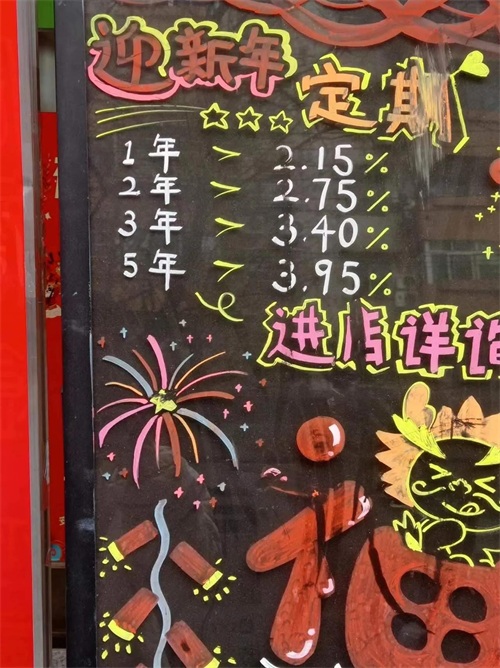 迎新年
定期
1年 > 2.15%
2年 > 2.75%
3年 > 3.40%
5年 > 3.95%
进店详询
福